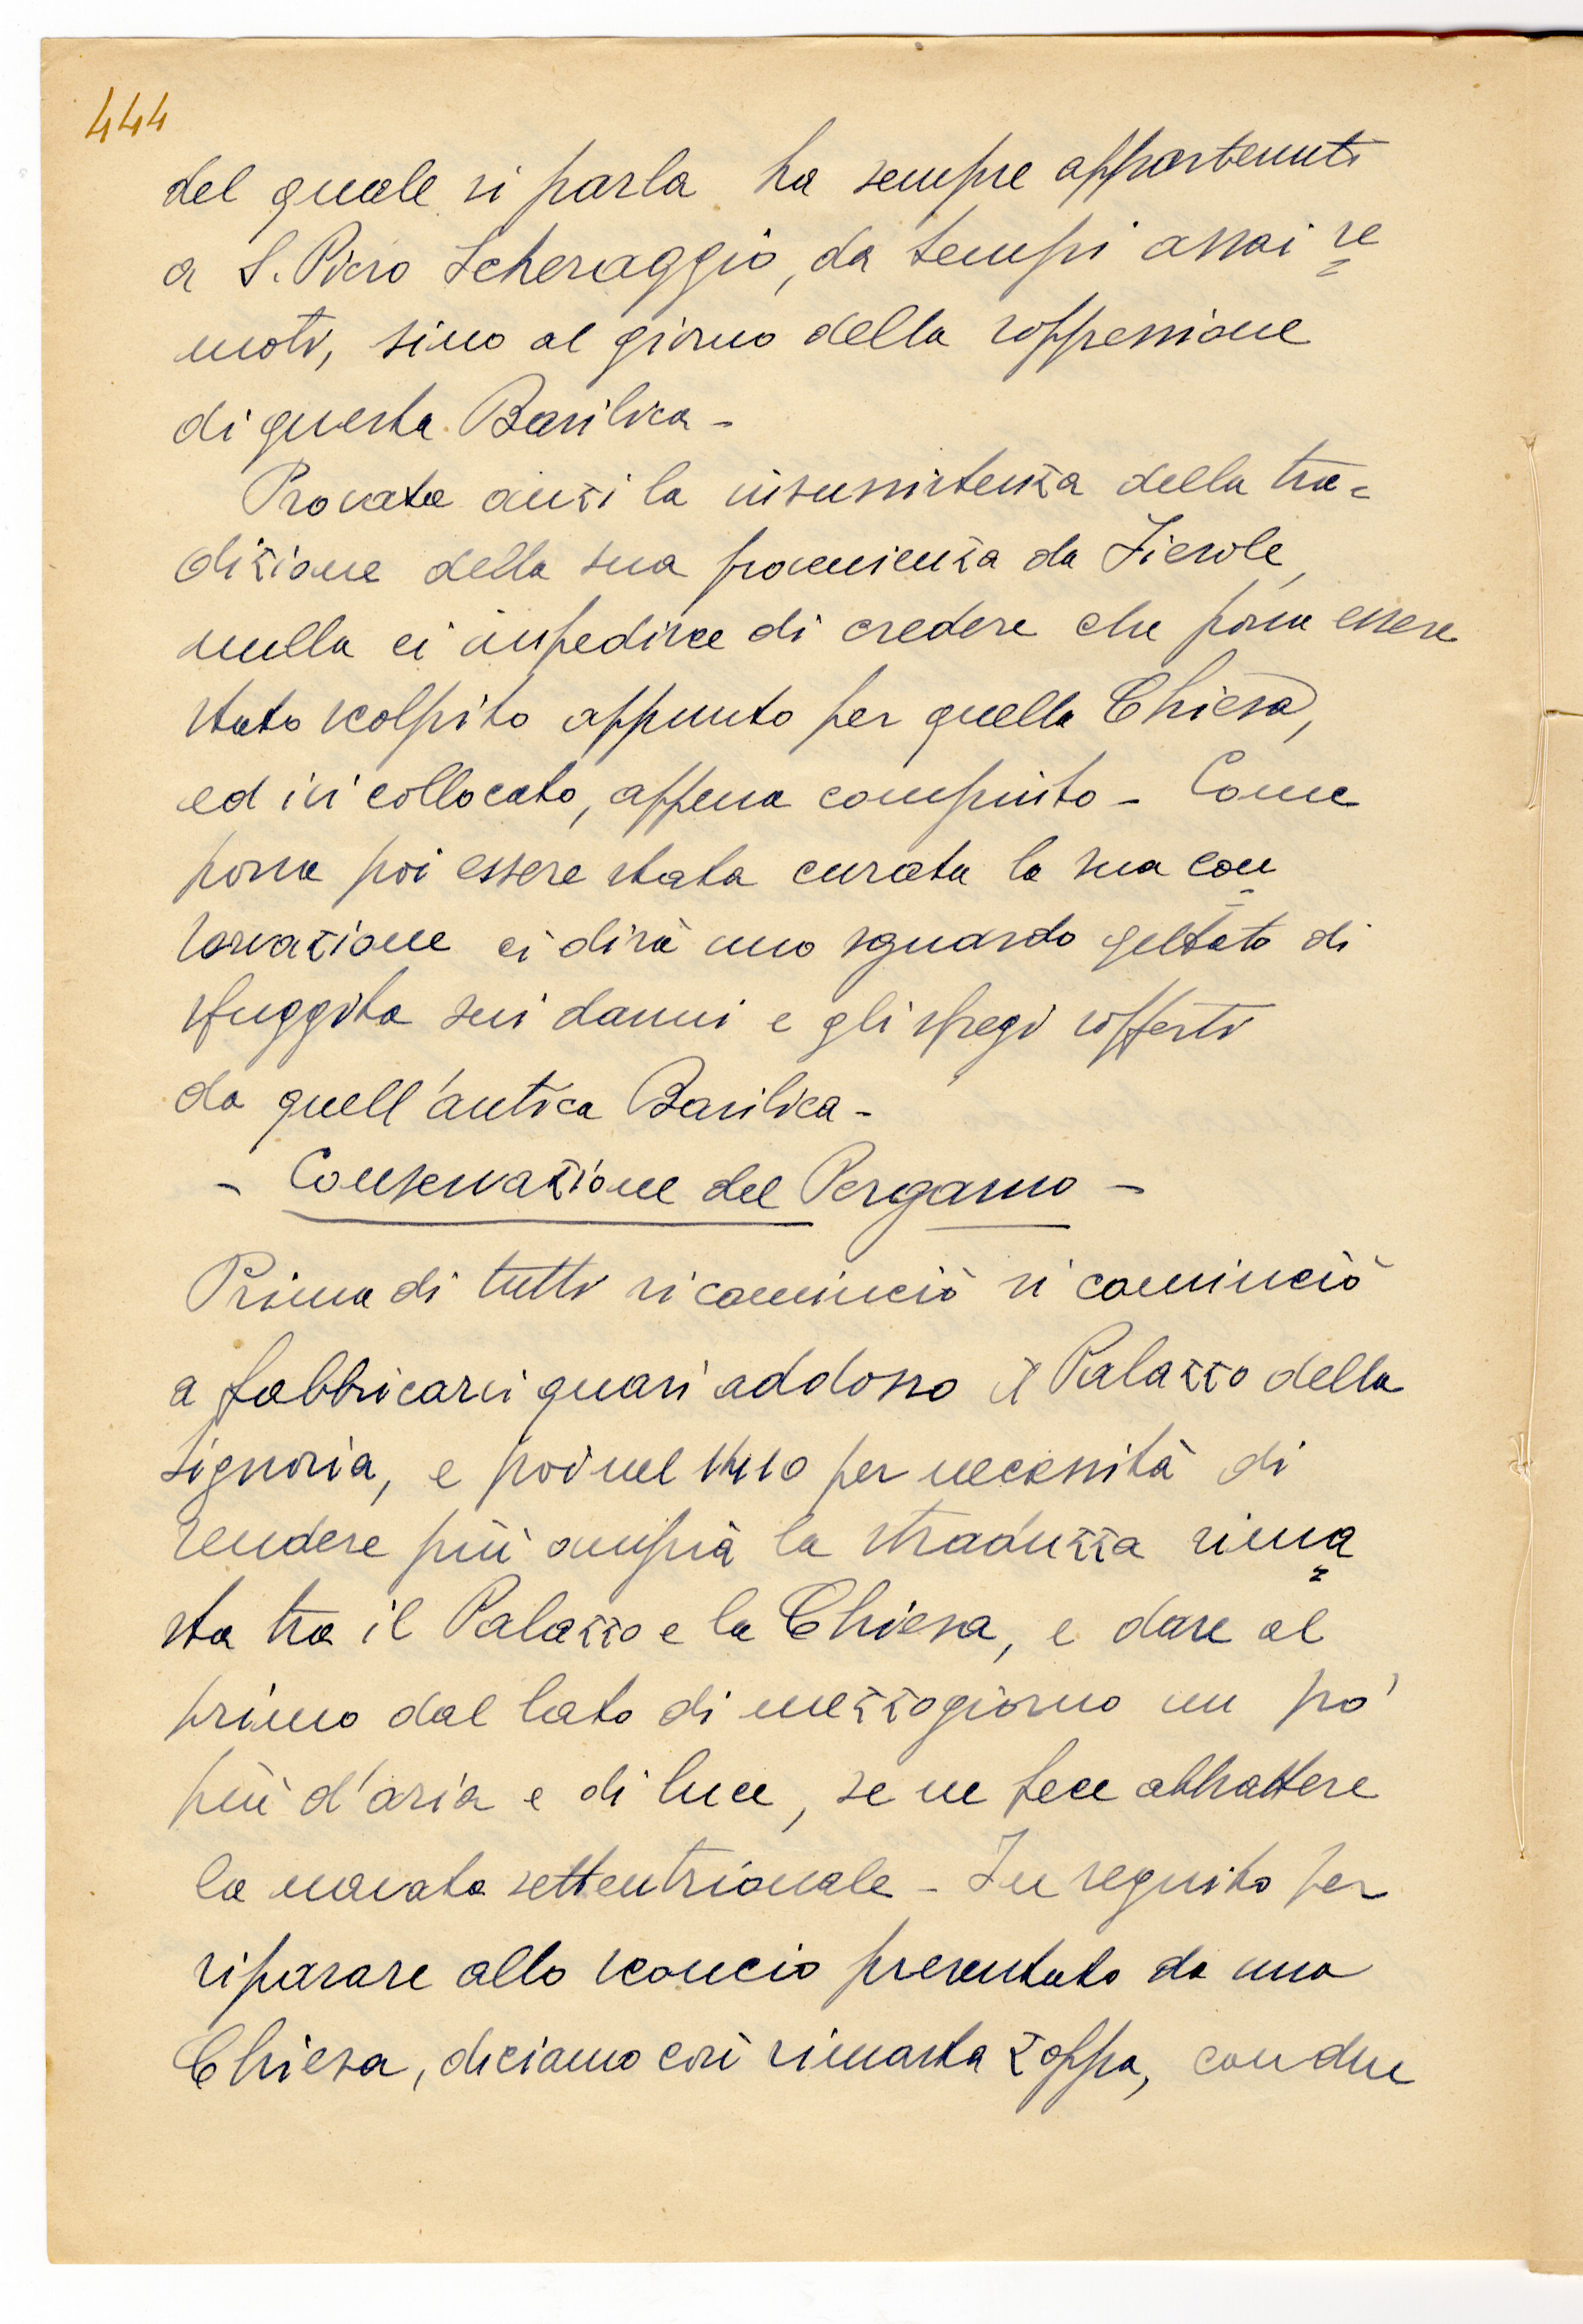 444
del quale si parla ha sempre appartenuti
a S. Piero Scheraggio, da tempi assai re=
moti, sino al giorno della soppressione
di questa Basilica -
Provata anzi la insussistenza della tra=
dizione della sua provenienza da Fiesole,
nulla ci impedisce di credere che possa essere
stato scolpito appunto per quella Chiesa,
ed ivi collocato, appena compiuto - Come
possa poi essere stata curata la sua con=
servazione ci dirà uno sguardo gettato di
sfuggita sui danni e gli sfregi sofferti
da quell'antica Basilica -
- Conservazione del Pergamo -
Prima di tutti si cominciò si cominciò
a fabbricarci quasi addosso il Palazzo della
Signoria, e poi nel 1410 per necessità di
rendere più ampia la straduzza rima=
sta tra il Palazzo e la Chiesa, e dare al
primo dal lato di mezzogiorno un po'
più d'aria e di luce, se ne fece abbattere
la navata settentrionale - In seguito per
riparare allo sconcio presentato da una
Chiesa, diciamo così rimasta zoppa, con due